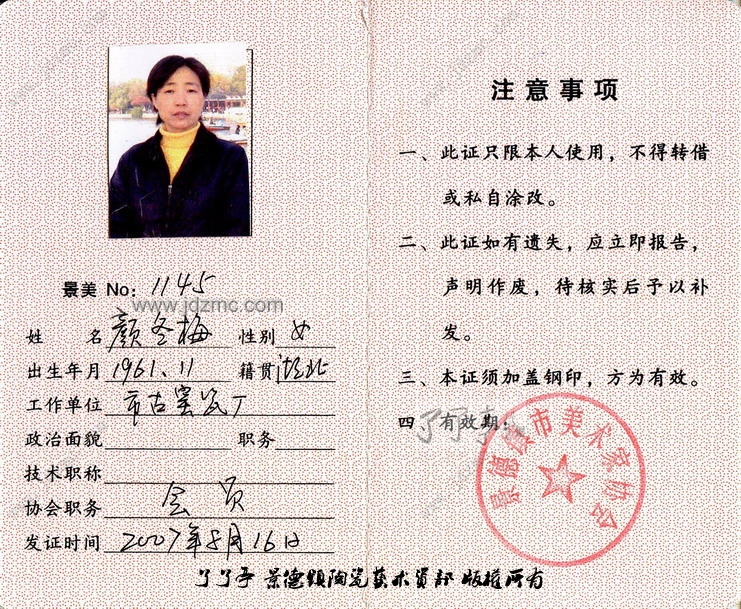 景美 No: 1145
www.jdzmc.com
姓 名 颜冬梅 性别 女
出生年月 1961.11 籍贯 湖北
工作单位 市古窑瓷厂
政治面貌 职务
技术职称
协会职务 会员
发证时间 2007年8月16日
注意事项
一、此证只限本人使用，不得转借
或私自涂改。
二、此证如有遗失，应立即报告，
声明作废，待核实后予以补
发。
三、本证须加盖钢印，方为有效。
四 有效期：
景德镇市美术家协会
了了亭 景德镇陶瓷艺术资部 版权所有